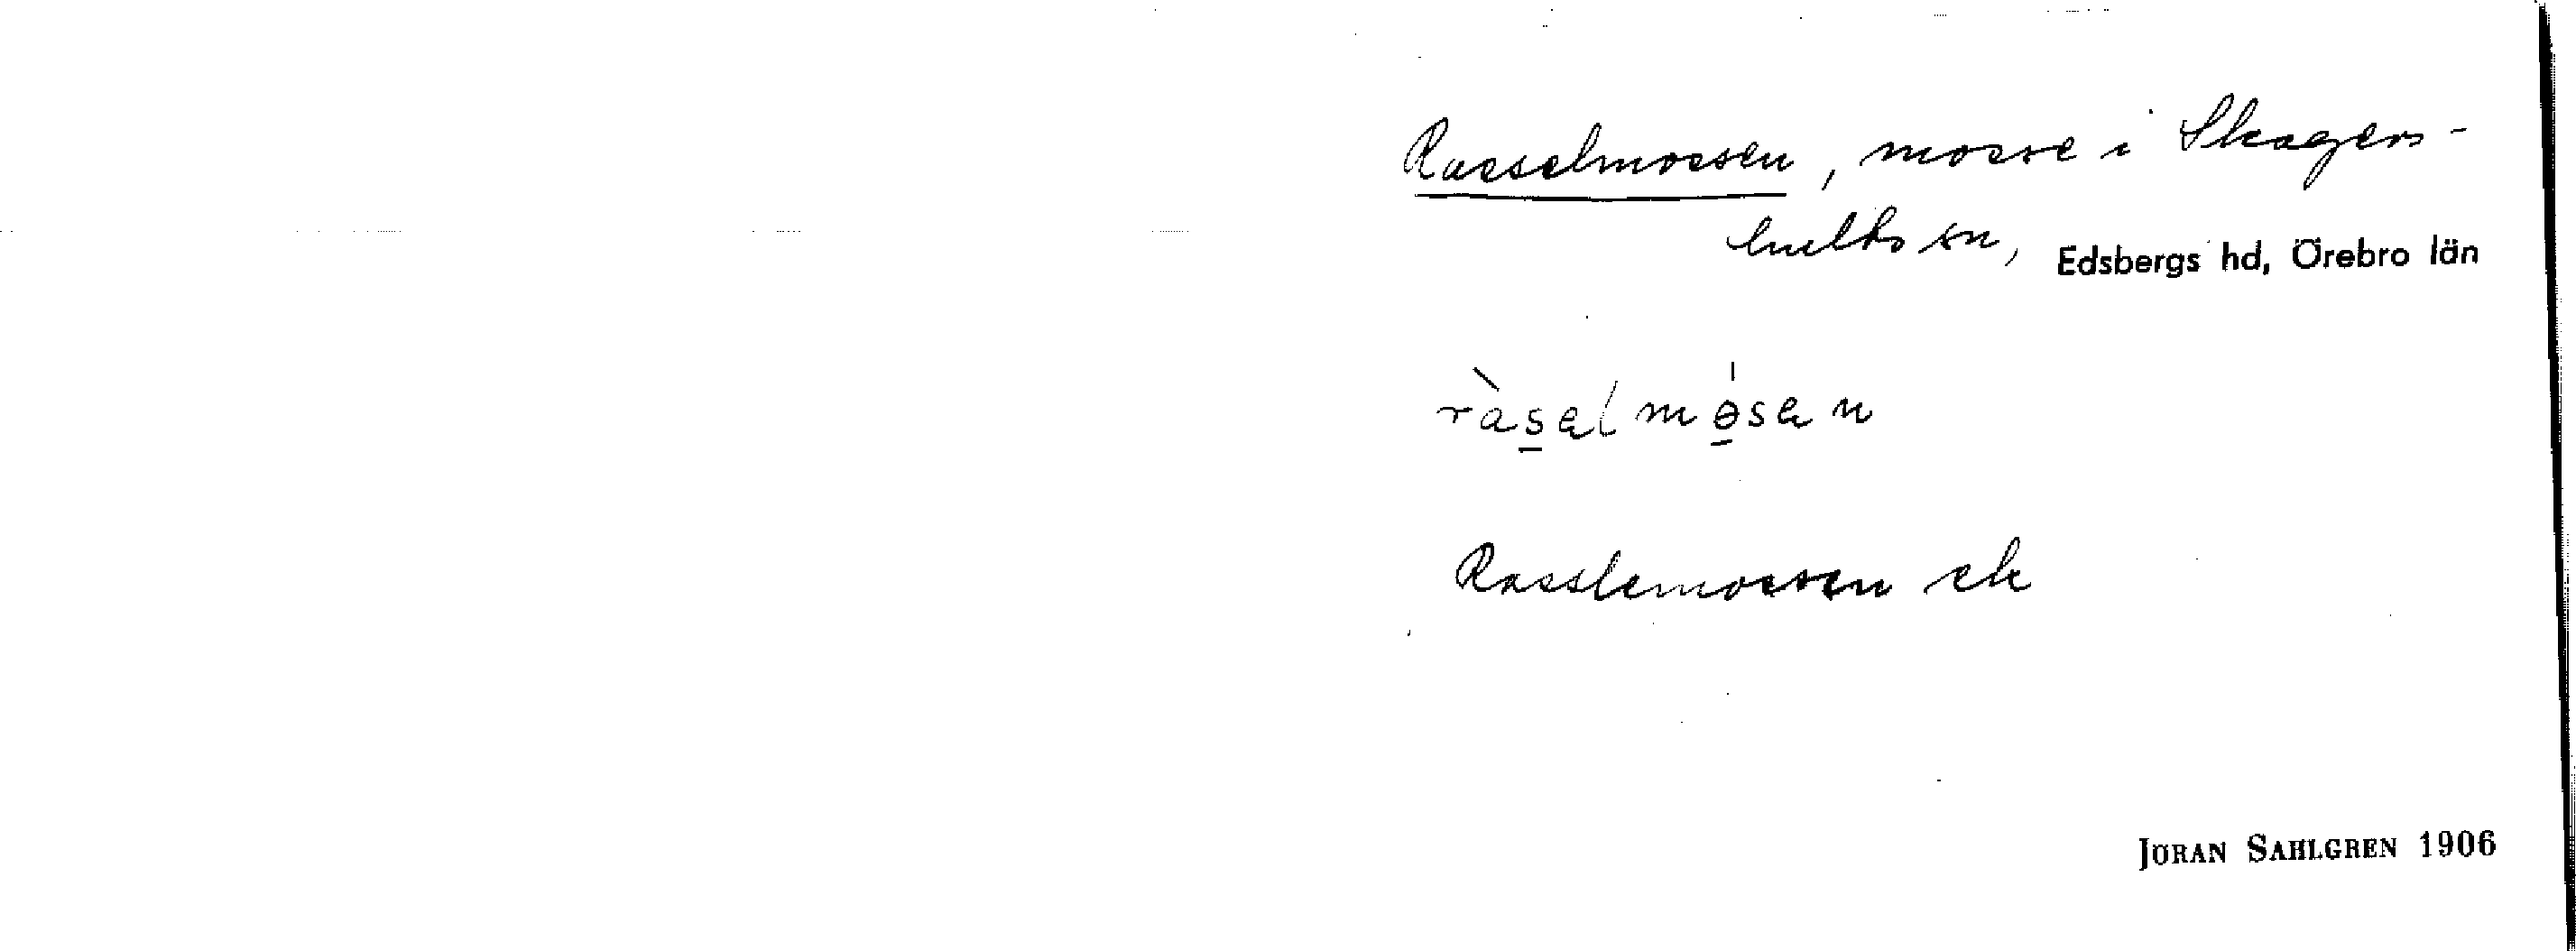 Rasselmossen, mosse i Skagers-
hults sn, Edsbergs hd, Örebro län
ràsəl mɵ̀sən
Rasslemossen ek
JÖRAN SAHLGREN 1906